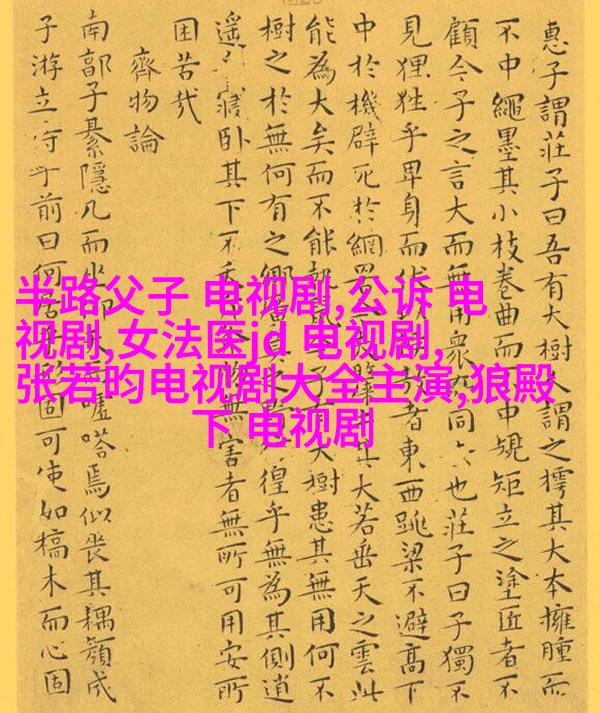 惠子謂莊子曰吾有大樹人謂之樗其大本擁腫而
不中繩墨其小枝卷曲而不中規矩立之塗匠者不
顧今子之言大而無用衆所同去也莊子曰子獨不
見狸狌乎卑身而伏 敖者東西跳梁不避高下
中於機辟死於網罟 其大若垂天之雲此
能為大矣而不能執鼠 子有大樹患其無用何不
樹之於無何有之鄉廣莫之 徨乎無為其側逍
遥 寢臥其下不夭 無害者無所可用安所
困苦哉
齊物論
南郭子綦隱几而坐仰天而噓嗒焉似喪其耦顏成
子游立侍乎前曰何居 固可使如槁木而心固
半路父子 电视剧,公诉 电
视剧,女法医jd 电视剧,
张若昀电视剧大全主演,狼殿
下 电视剧